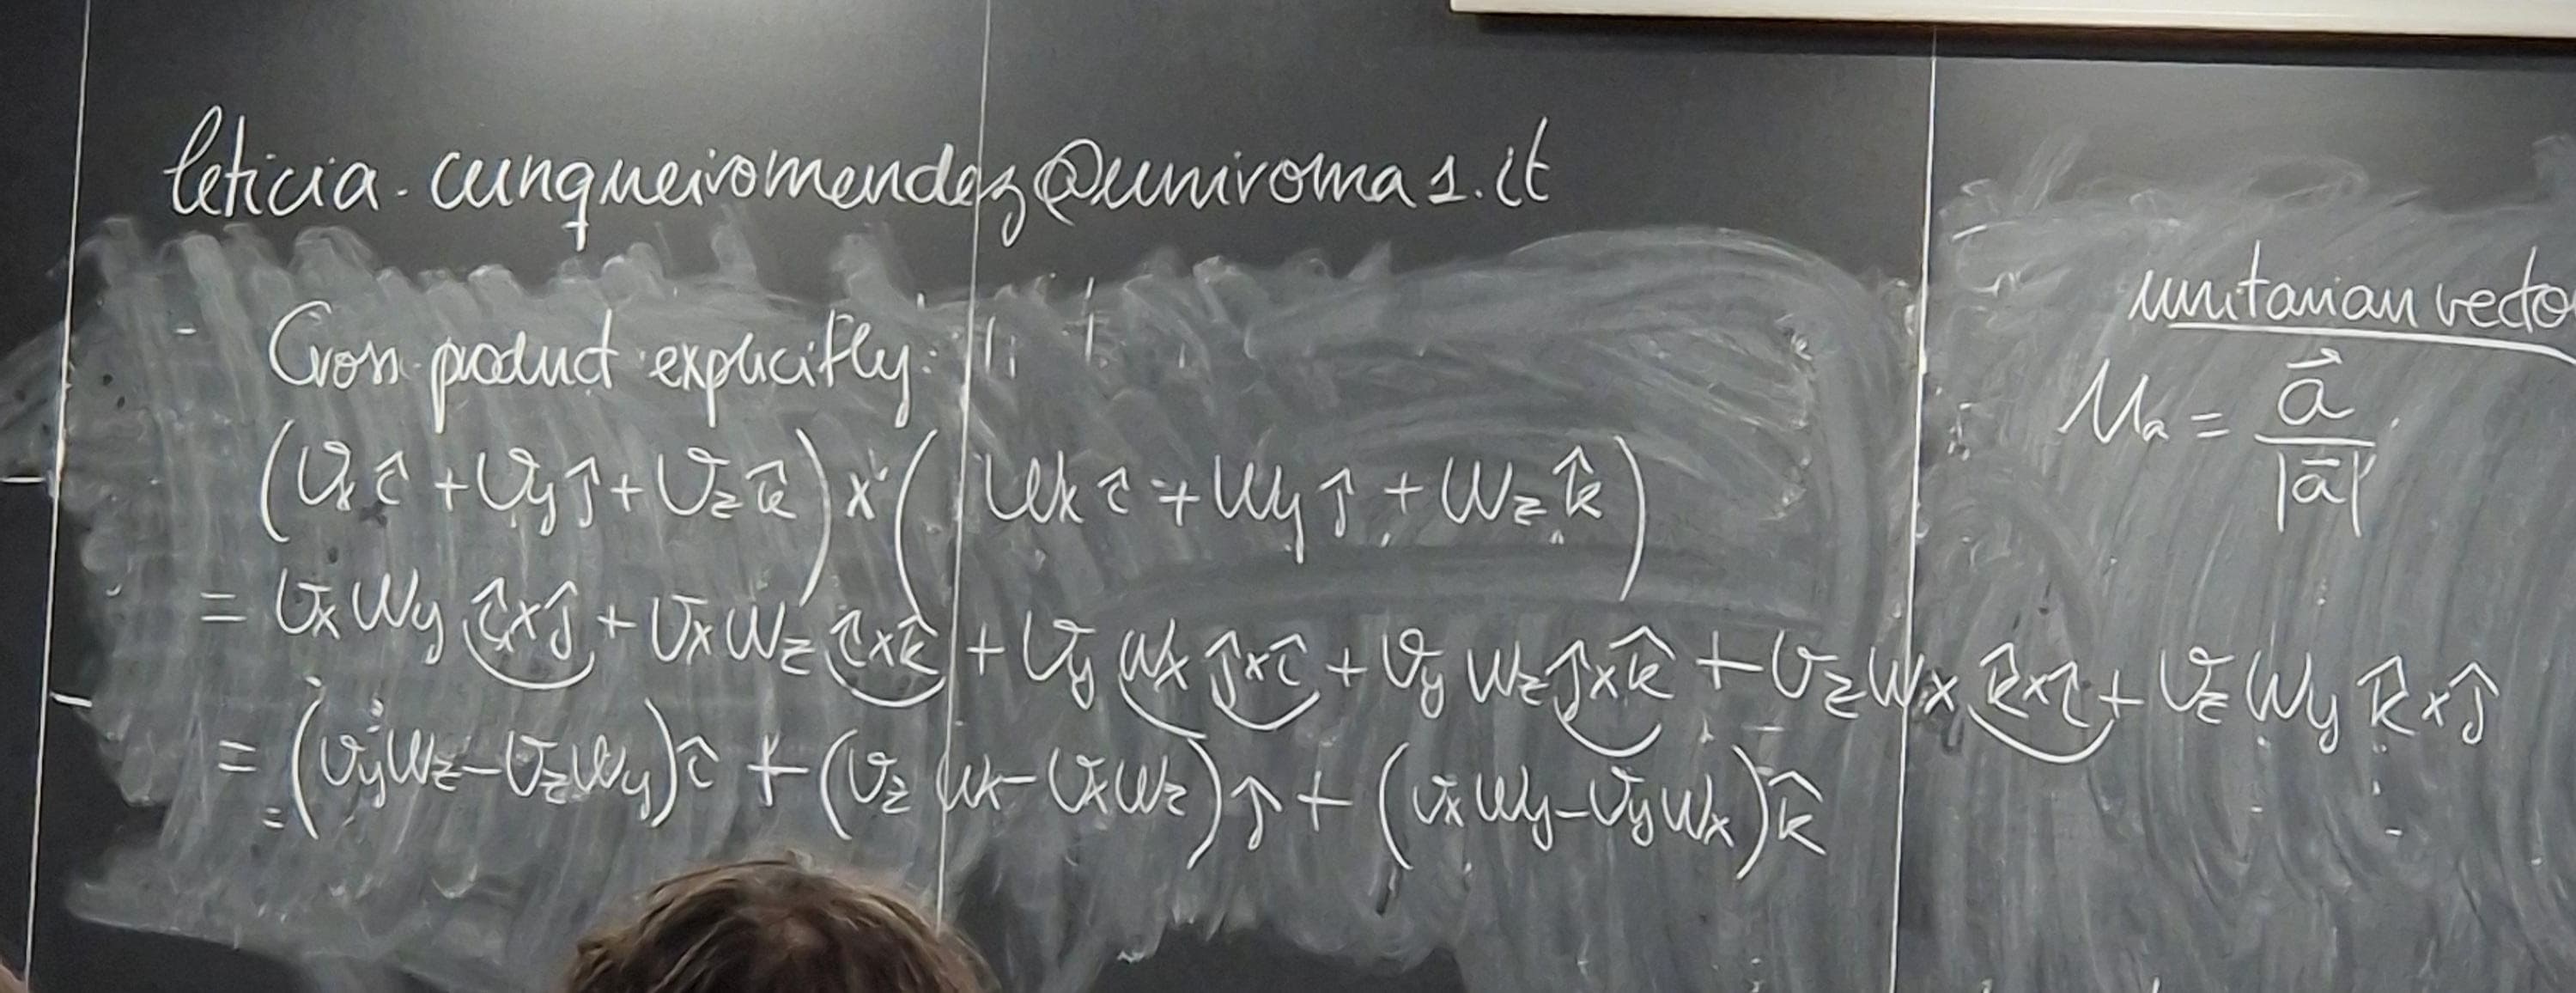 leticia.cunqueiromendez@uniroma1.it
- Cross product explicitly:
(vₓ î + v_y ĵ + v_z k̂) x (wₓ î + w_y ĵ + w_z k̂)
= vₓ w_y î x ĵ + vₓ w_z î x k̂ + v_y wₓ ĵ x î + v_y w_z ĵ x k̂ + v_z wₓ k̂ x î + v_z w_y k̂ x ĵ
= (v_y w_z - v_z w_y) î + (v_z wₓ - vₓ w_z) ĵ + (vₓ w_y - v_y wₓ) k̂
unitarian vecto
uₐ = a⃗ / |a⃗|